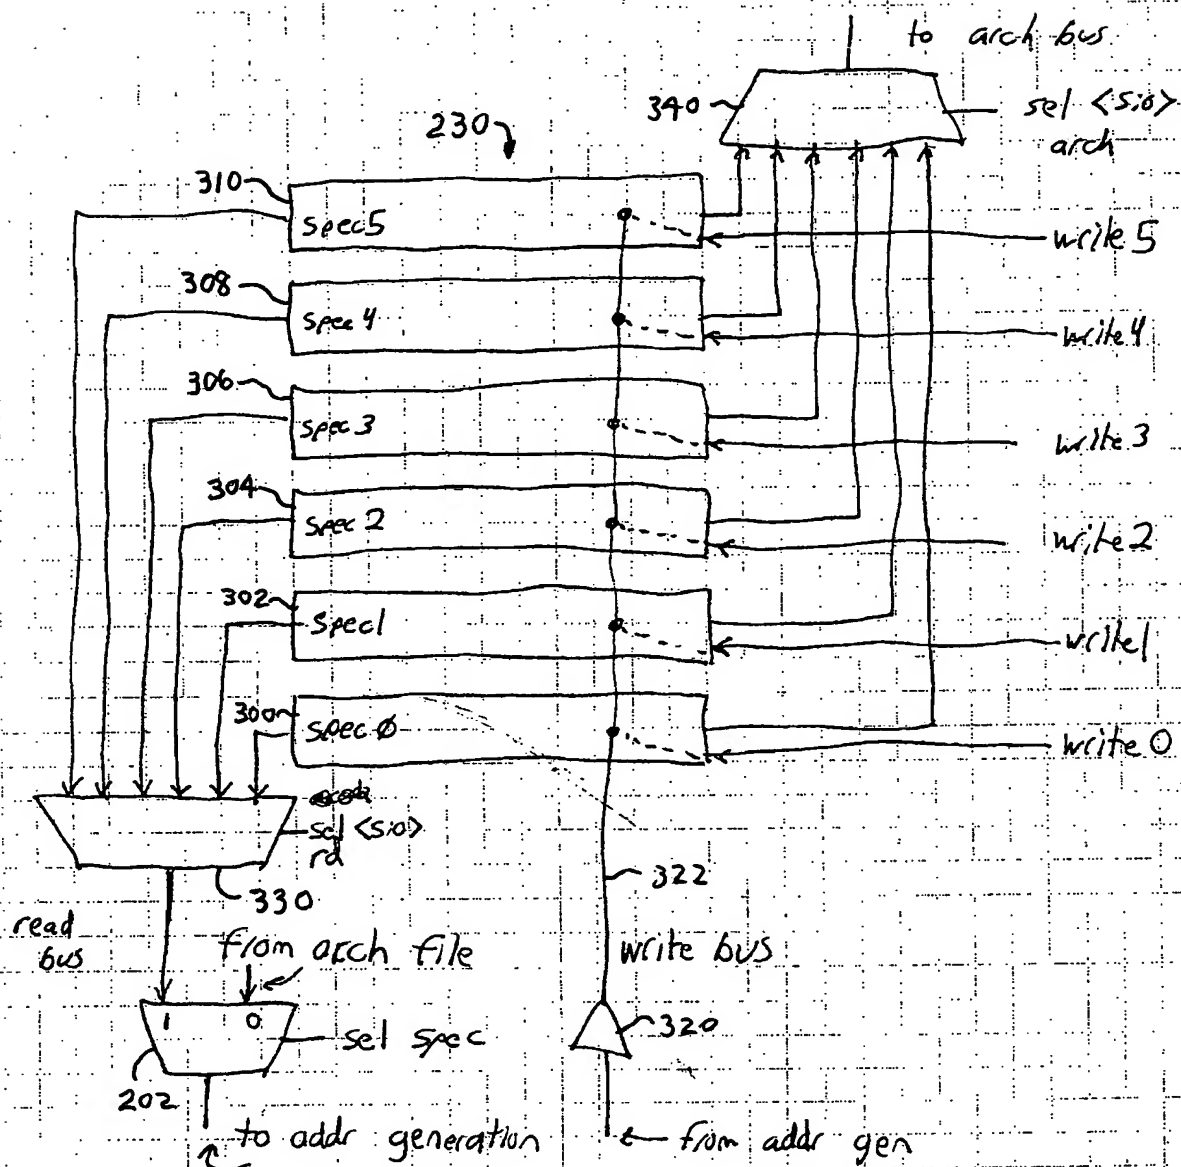 to arch bus
340
sel <sio>
arch
230
310
spec5
write 5
308
spec 4
write 4
306
spec 3
write 3
304
spec 2
write 2
302
spec1
write1
300
spec ø
write 0
sel <sio>
rd
330
322
read
bus
from arch file
write bus
1 0
sel spec
320
202
to addr generation
from addr gen